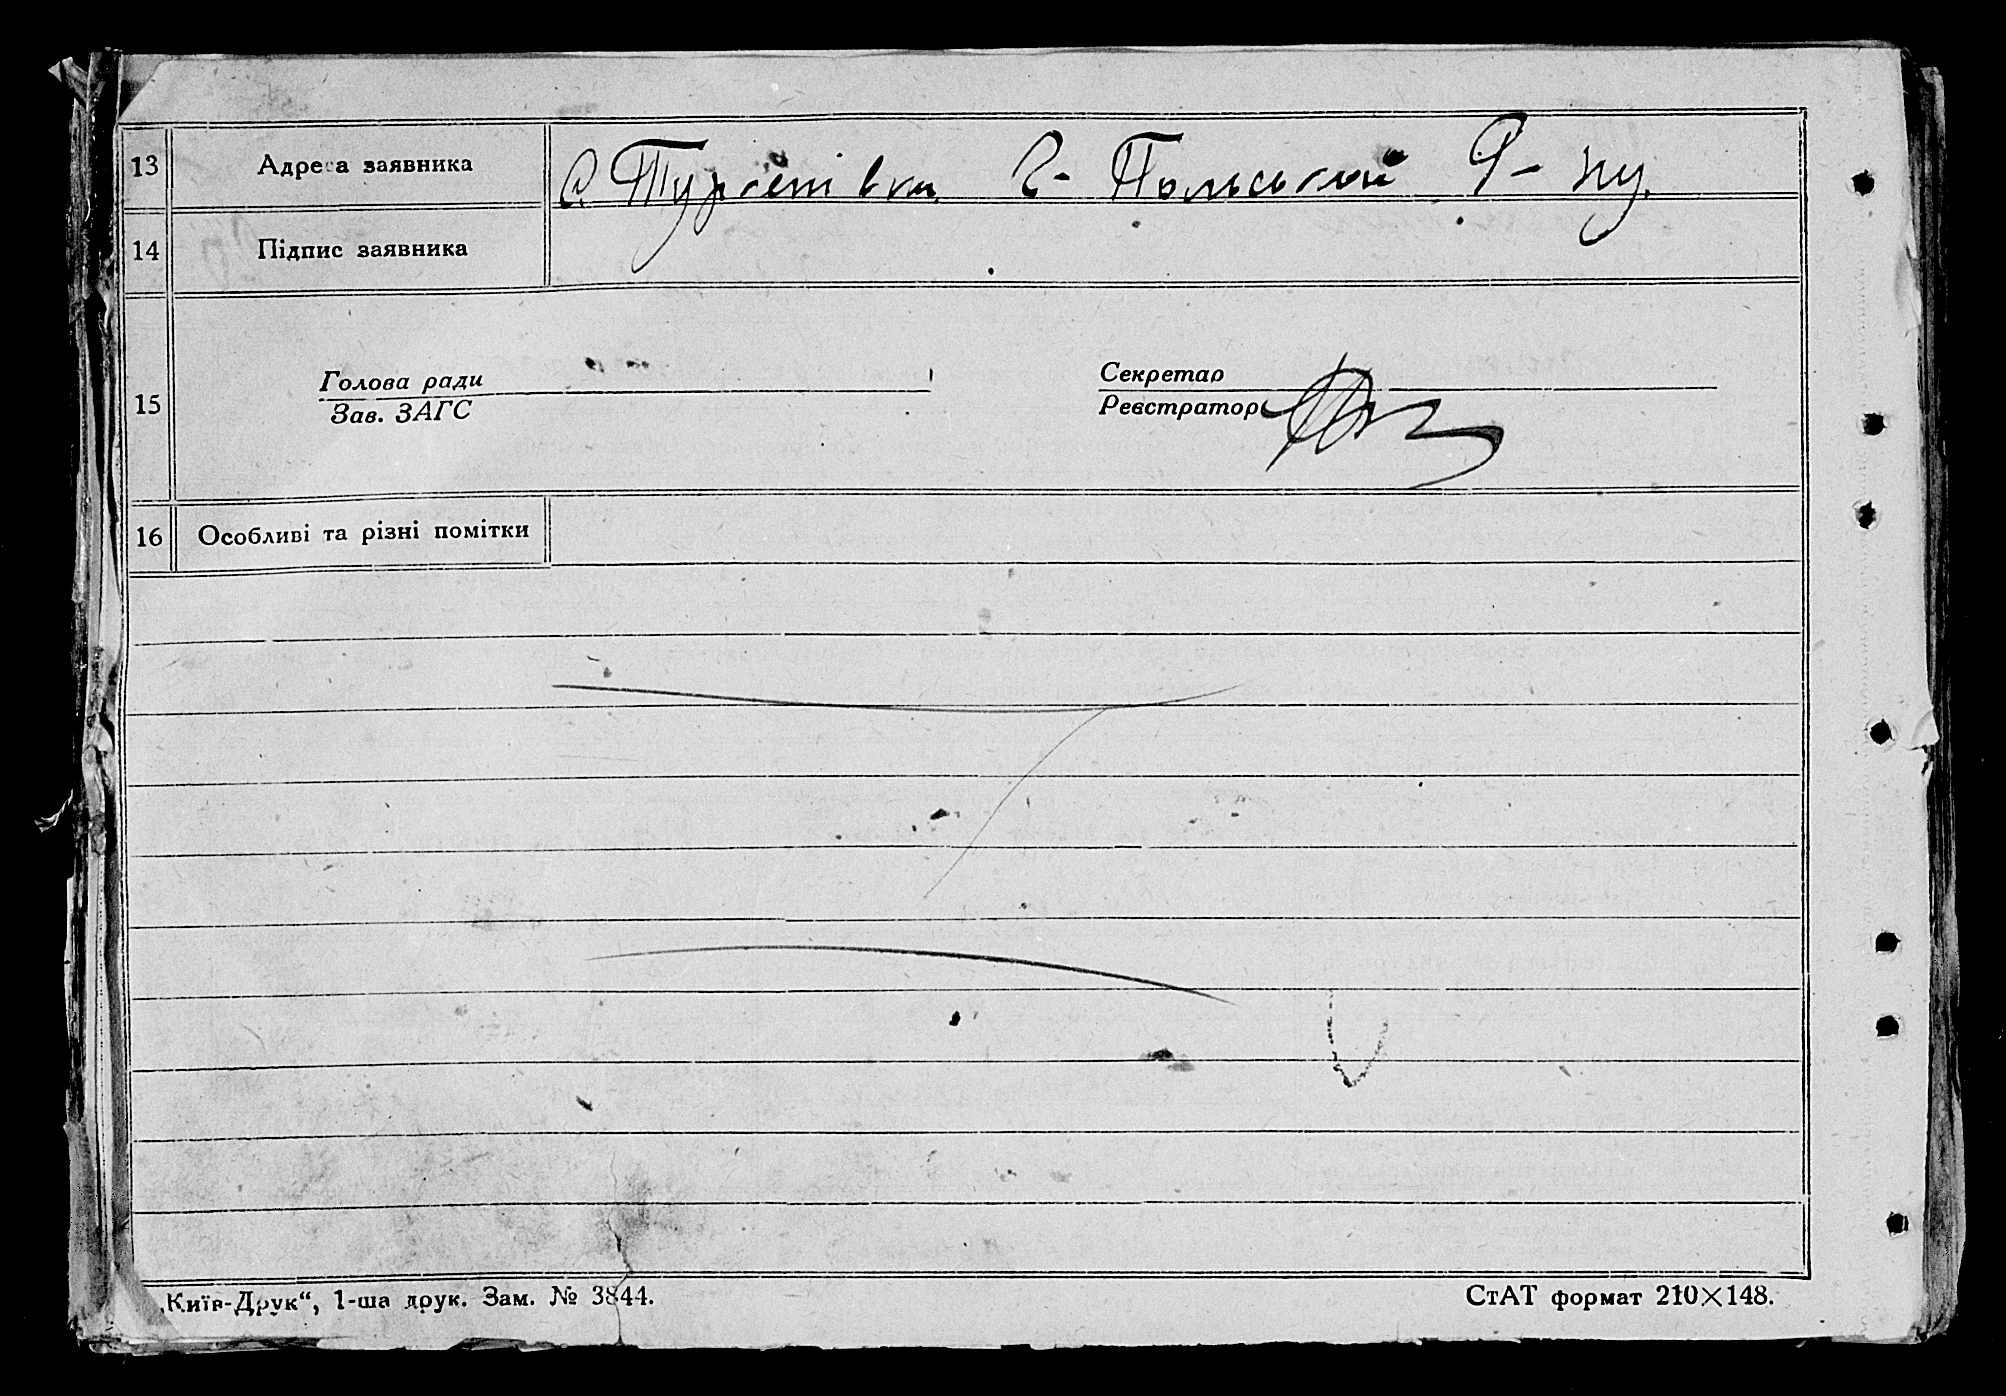 13 Адреса заявника с. Тургенівка Г- Польської Р- ну.
14 Підпис заявника
Голова ради Секретар
15
Зав. ЗАГС Реєстратор
16 Особливі та різні помітки
„Київ-Друк“, 1-ша друк. Зам. № 3844. СтАТ формат 210×148.